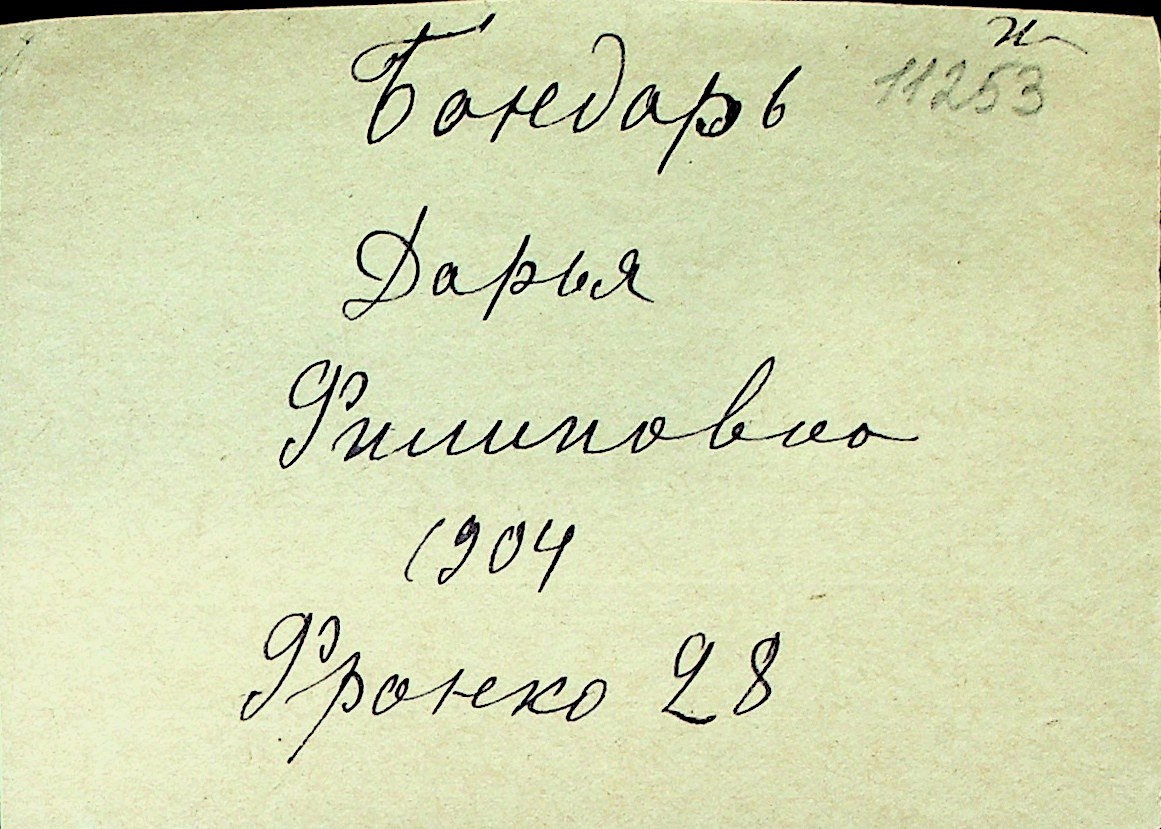 Бондарь
11253
Дарья
Филиповна
1904
Франко 28